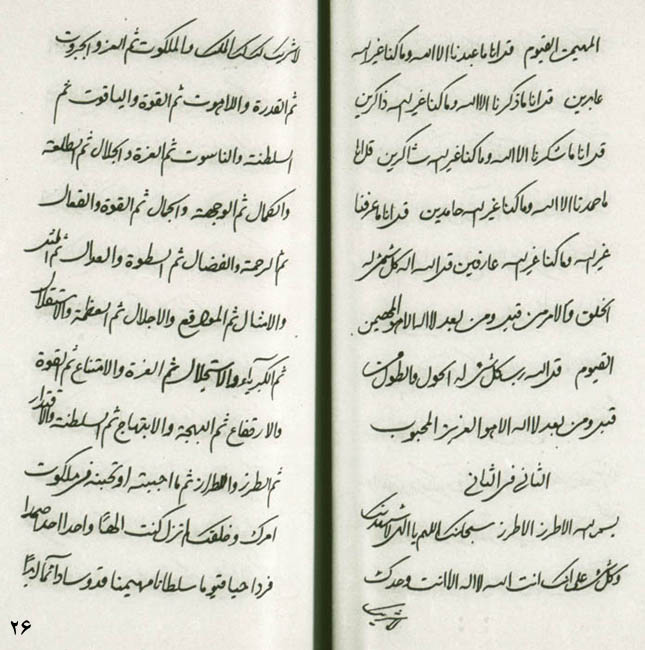 المهیمن القیوم قل انا ما عبدنا الا الله وما کنا غیر الله
عابدین قل انا ما ذکرنا الا الله وما کنا غیر الله ذاکرین
قل انا ما شکرنا الا الله وما کنا غیر الله شاکرین قل انا
ما حمدنا الا الله وما کنا غیر الله حامدین قل انا ما عرفنا
غیر الله وما کنا غیر الله عارفین قل الله اله کل شیء له
الخلق والامر من قبل ومن بعد لا اله الا هو المهیمن
القیوم قل الله رب کل شیء له الحول والطول من
قبل ومن بعد لا اله الا هو العزیز المحبوب
الثانی فی الثانی
بسم الله الاطرز الاطرز سبحانک اللهم یا الهی لاشهدنک
وکل شیء علی انک انت الله لا اله الا انت وحدک
لا شریک
لا شریک لک لک الملک والملکوت ثم العز والجبروت
ثم القدرة واللاهوت ثم القوة والیاقوت ثم
السلطنة والناسوت ثم العزة والجلال ثم الطلعة
والکمال ثم الوجهة والجمال ثم القوة والفعال
ثم الرحمة والفضال ثم السطوة والعدال ثم المثل
والامثال ثم المواقع والاجلال ثم العظمة والاستقلال
ثم الکبریاء والاستجلال ثم العزة والامتناع ثم القوة
والارتفاع ثم البهجة والابتهاج ثم السلطنة والاقتدار
ثم الطرز والطراز ثم ما احببته او تحبنه فی ملکوت
امرک وخلقک لم تزل کنت الها واحدا احدا صمدا
فردا حیا قیوما سلطانا مهیمنا قدوسا دائما ابدا
۲۶